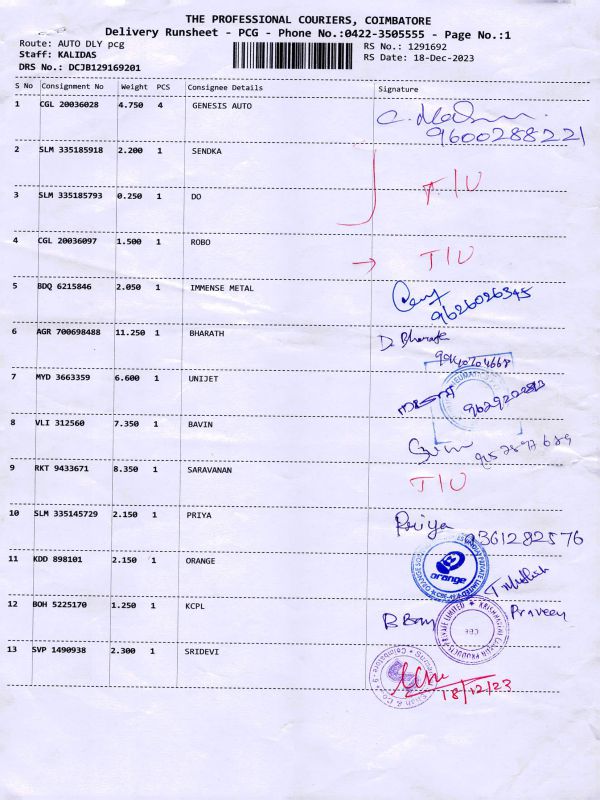 THE PROFESSIONAL COURIERS, COIMBATORE
Delivery Runsheet - PCG - Phone No.:0422-3505555 - Page No.:1
Route: AUTO DLY pcg
Staff: KALIDAS
DRS No.: DCJB129169201
RS No.: 1291692
RS Date: 18-Dec-2023
S No Consignment No Weight PCS Consignee Details Signature
1 CGL 20036028 4.750 4 GENESIS AUTO
9600288221
2 SLM 335185918 2.200 1 SENDKA
3 SLM 335185793 0.250 1 DO
T/U
4 CGL 20036097 1.500 1 ROBO
T/U
5 BDQ 6215846 2.050 1 IMMENSE METAL
9626026345
6 AGR 700698488 11.250 1 BHARATH
D Bharath
9940704668
7 MYD 3663359 6.600 1 UNIJET
8 VLI 312560 7.350 1 BAVIN
9 RKT 9433671 8.350 1 SARAVANAN
T/U
10 SLM 335145729 2.150 1 PRIYA
Priya 9361282576
11 KDD 898101 2.150 1 ORANGE
orange
12 BOH 5225170 1.250 1 KCPL
Praveen
CBE
13 SVP 1490938 2.300 1 SRIDEVI
18/12/23